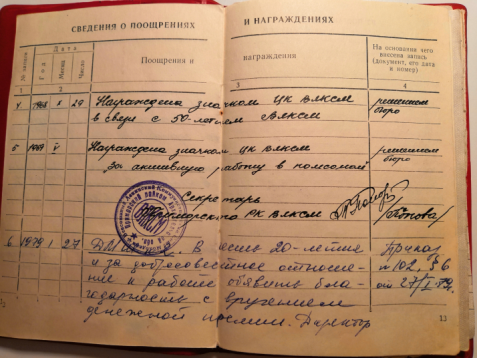 СВЕДЕНИЯ О ПООЩРЕНИЯХ И НАГРАЖДЕНИЯХ
№ записи Дата Год Месяц Число Поощрения и награждения На основании чего внесена запись (документ, его дата и номер)
1 2 3 4
4 1968 X 29 Награждена значком ЦК ВЛКСМ решением
в связи с 50-летием ВЛКСМ бюро
5 1969 V Награждена значком ЦК ВЛКСМ решением
за активную работу в комсомоле бюро
Секретарь
РК ВЛКСМ /Попова/
6 1979 1 27 В честь 20-летия Приказ
и за добросовестное отноше- n 102, § 6
ние к работе объявить бла- от 27/I-79.
годарность с вручением
денежной премии. Директор
13